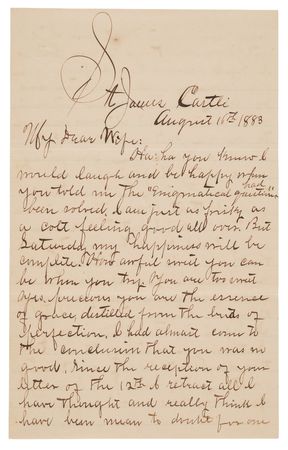 St James Castle
August 16th 1883
My Dear Wife:
Ha ha you know I
would laugh and be happy when
you told me the "Enigmatical question" had
been solved. I am just as frisky as
a colt feeling good all over. But
Saturday my happiness will be
complete. How awful sweet you can
be when you try. You are two sweet
Precious you are the essence
of grace, distilled from the buds of
perfection. I had almost come to
the conclusion that you was no
good. Since the reception of your
letter of the 12th I retract all I
have thought and really think I
have been mean to doubt for one